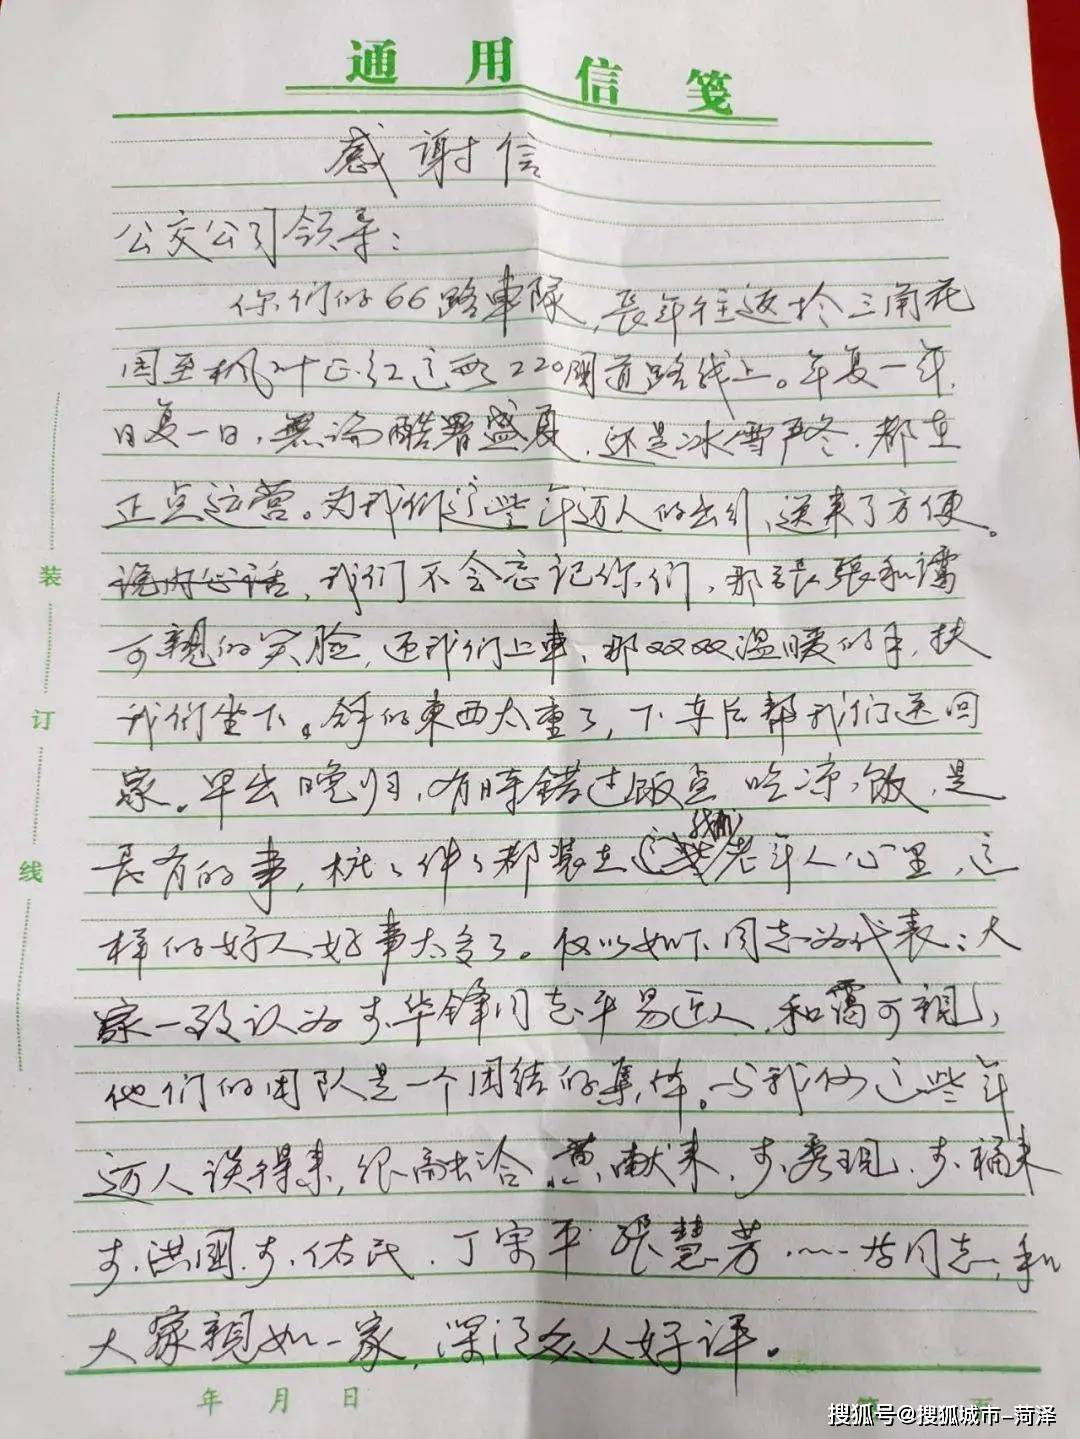 通用信笺
感谢信
公交公司领导:
你们的66路車隊,長年往返於三角花
园至枫叶正红这两220国道路线上。年复一年,
日复一日,無论酷暑盛夏,还是冰雪严冬,都在
正点运营。为我们这些年迈人的出行,送来了方便。
说内心话,我们不会忘记你们,那張張和藹
可親的笑脸,迎我们上車,那双双温暖的手,扶
我们坐下。拿的東西太重了,下车后帮我们送回
家。早出晚归,有時錯过飯点吃凉饭,是
長有的事,桩桩件件都装在我们老年人心里,这
样的好人好事太多了。仅以如下同志为代表:大
家一致认为 华锋同志平易近人,和藹可親,
他们的团队是一个团结的集体。与我们这些年
迈人谈得来,很融洽 黄献来, 秀现, 福来
洪國, 佑民,丁宗平 張慧芳……等同志,和
大家親如一家,深得众人好评。
装
订
线
年 月 日
第 页
搜狐号@搜狐城市-菏泽